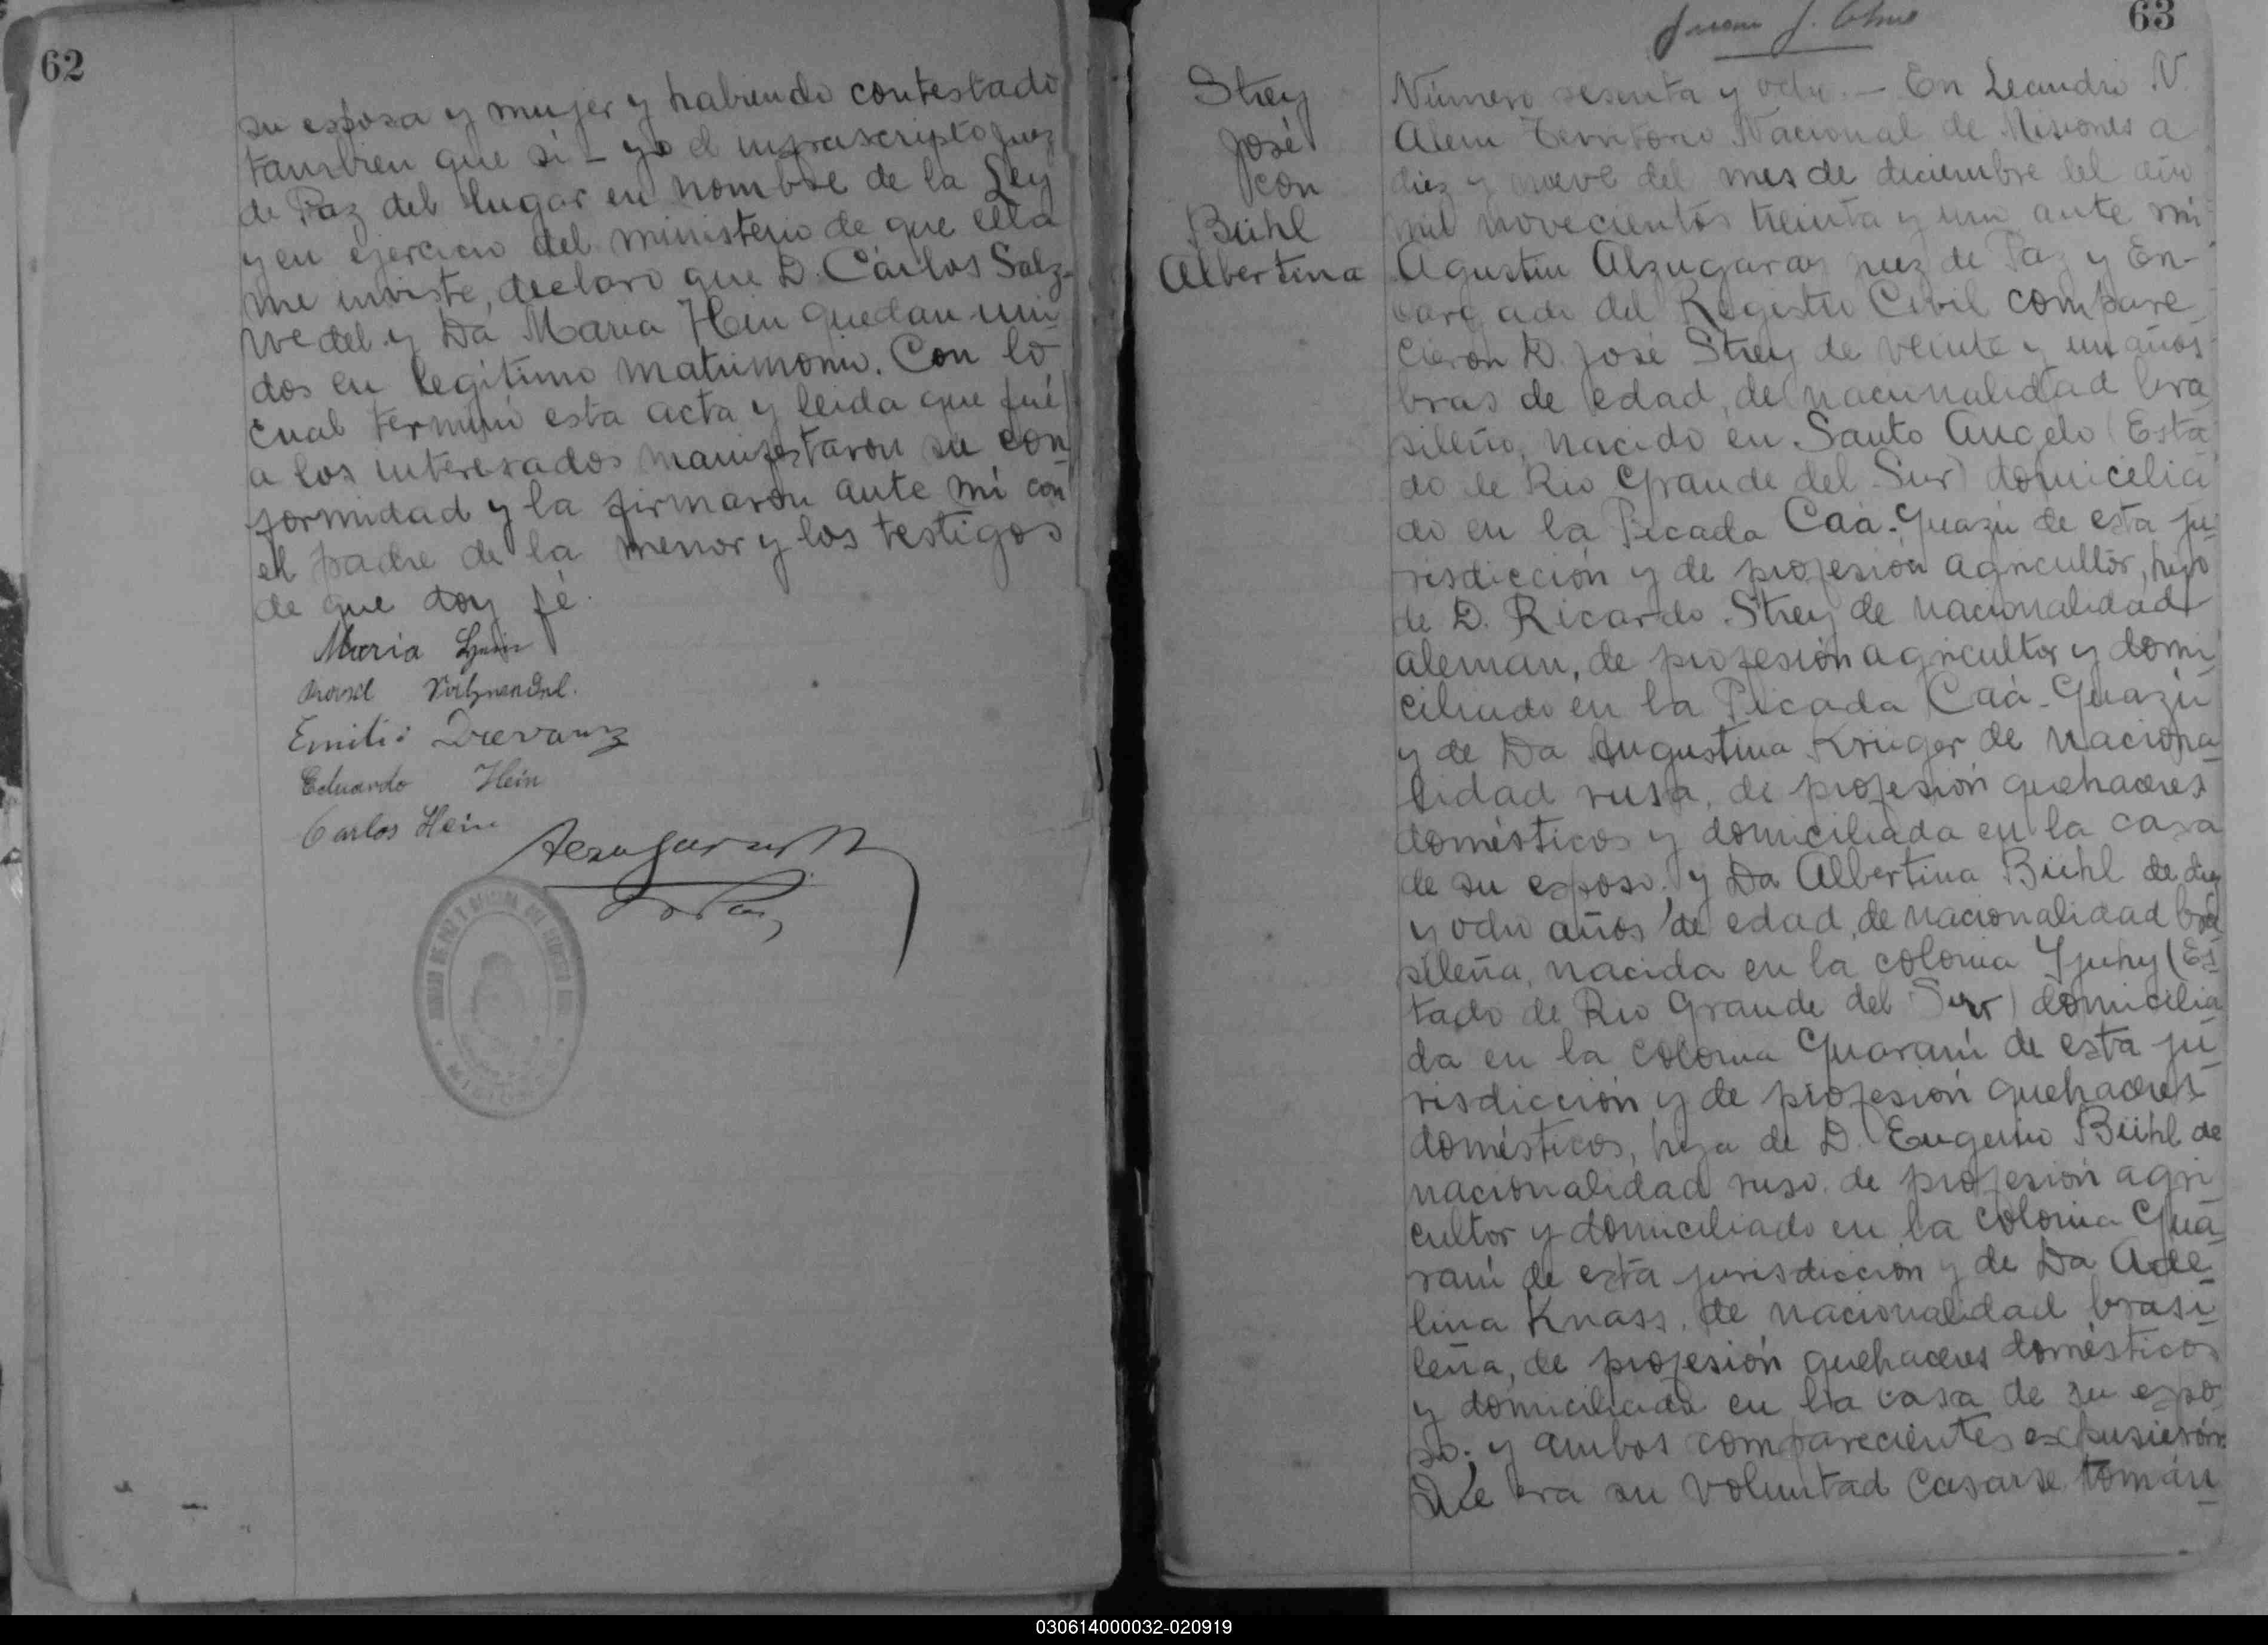 62
su esposa y mujer y habiendo contestado
tambien que si – yo el infrascripto Juez
de Paz del lugar en nombre de la Ley
y en ejercicio del ministerio de que ella
me inviste, declaro que D. Cárlos Salz-
wedel y Da María Hein quedan uni
dos en legítimo matrimonio. Con lo
cual terminó esta acta y leida que fué
a los interesados manifestaron su con
formidad y la firmaron ante mí con
el padre de la menor y los testigos
de que doy fé.
Maria Hein
Emilio
Eduardo Hein
Carlos Hein
63
Juan J.
Strey
José
con
Bühl
Albertina
Número sesenta y ocho. – En Leandro N.
Alem Territorio Nacional de Misiones a
diez y nueve del mes de diciembre del año
mil novecientos treinta y uno ante mi
Agustin Alzugaray Juez de Paz y En-
cargado del Registro Civil compare
cieron D. José Strey de veinte y un años
de edad, de nacionalidad bra
sileño, nacido en Santo Angelo (Esta
do de Rio Grande del Sur) domicilia
do en la Picada Caá-Guazú de esta ju
risdicción y de profesión agricultor, hijo
de D. Ricardo Strey de nacionalidad
aleman, de profesión agricultor y domi
ciliado en la Picada Caá-Guazú
y de Da Augustina Krüger de naciona
lidad rusa, de profesión quehaceres
domésticos y domiciliada en la casa
de su esposo; y Da Albertina Bühl de diez
y ocho años de edad, de nacionalidad bra
sileña, nacida en la colonia Yjuhy (Es
tado de Rio Grande del Sur) domicilia
da en la colonia Guaraní de esta ju
risdicción y de profesión quehaceres
domésticos, hija de D. Eugenio Bühl de
nacionalidad ruso, de profesión agri
cultor y domiciliado en la colonia Gua
raní de esta jurisdicción y de Da Ade
lina Knass, de nacionalidad brasi
leña, de profesión quehaceres domésticos
y domiciliada en la casa de su espo
so; y ambos comparecientes expusierón:
Que era su voluntad casarse tomán
030614000032-020919